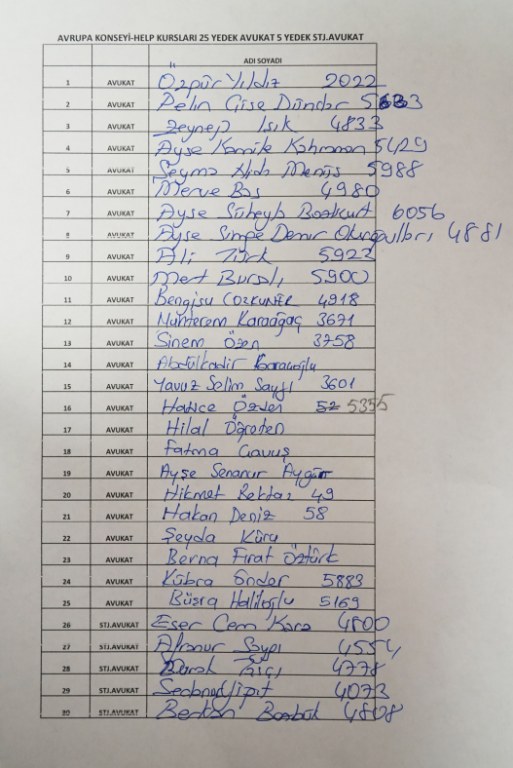 AVRUPA KONSEYİ-HELP KURSLARI 25 YEDEK AVUKAT 5 YEDEK STJ.AVUKAT
ADI SOYADI
1 AVUKAT Özgür Yıldız 2022
2 AVUKAT Pelin Dündar
3 AVUKAT Zeynep Işık 4833
4 AVUKAT Ayşe Kahraman 5429
5 AVUKAT Şeyma 5988
6 AVUKAT Merve Baş 4980
7 AVUKAT Ayşe Süheyla Bozkurt 6056
8 AVUKAT Ayşe Simge Demir 4881
9 AVUKAT Ali Türk 5922
10 AVUKAT Mert Bursalı 5900
11 AVUKAT Bengisu 4918
12 AVUKAT Muhterem Karaağaç 3671
13 AVUKAT Sinem Özen 3758
14 AVUKAT Abdülkadir
15 AVUKAT Yavuz Selim Saygı 3601
16 AVUKAT Hatice Özden 5355
17 AVUKAT Hilal Öğreten
18 AVUKAT Fatma Çavuş
19 AVUKAT Ayşe Senanur Aygün
20 AVUKAT Hikmet Bektaş 49
21 AVUKAT Hakan Deniz 58
22 AVUKAT Şeyda Kuru
23 AVUKAT Berna Fırat Öztürk
24 AVUKAT Kübra Önder 5883
25 AVUKAT Büşra Haliloğlu 5169
26 STJ.AVUKAT Eser Cem Kara 4800
27 STJ.AVUKAT Afranur 4554
28 STJ.AVUKAT Burak 4778
29 STJ.AVUKAT 4073
30 STJ.AVUKAT Berkan 4808